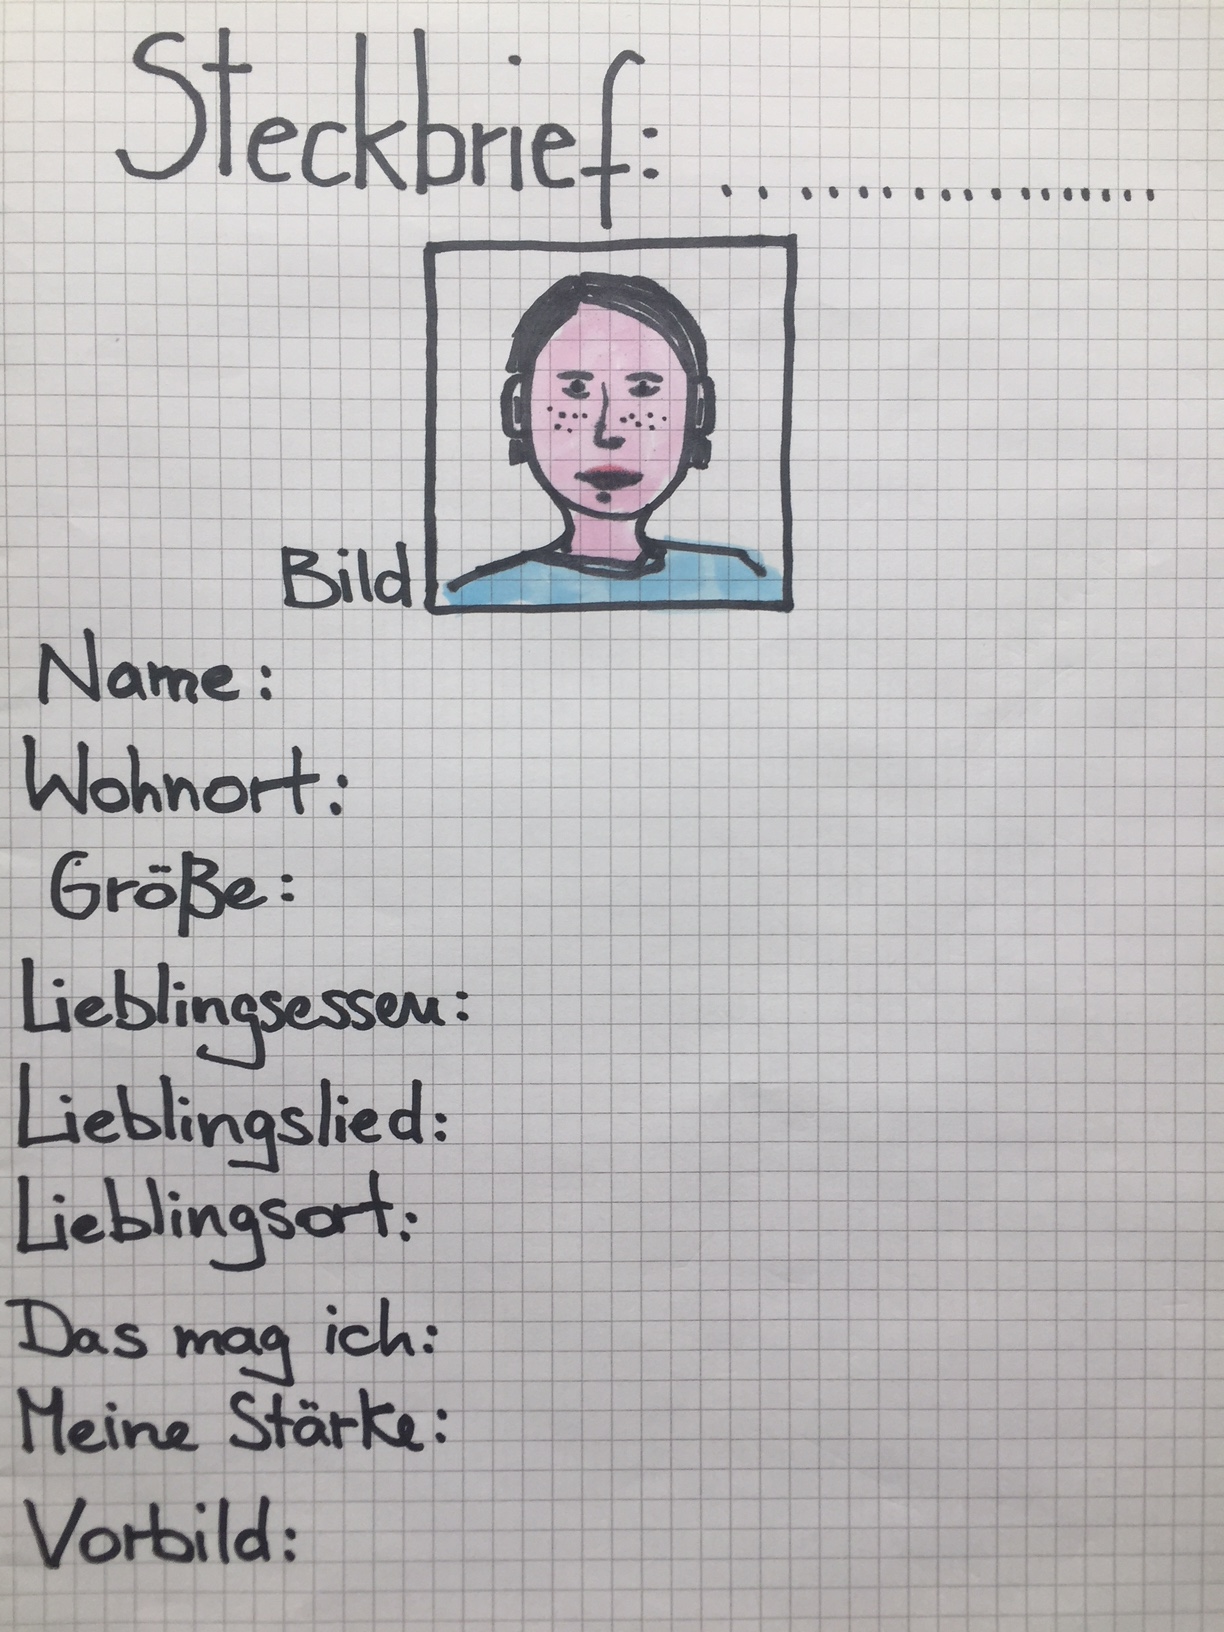 Steckbrief: ..................
Bild
Name:
Wohnort:
Größe:
Lieblingsessen:
Lieblingslied:
Lieblingsort:
Das mag ich:
Meine Stärke:
Vorbild: